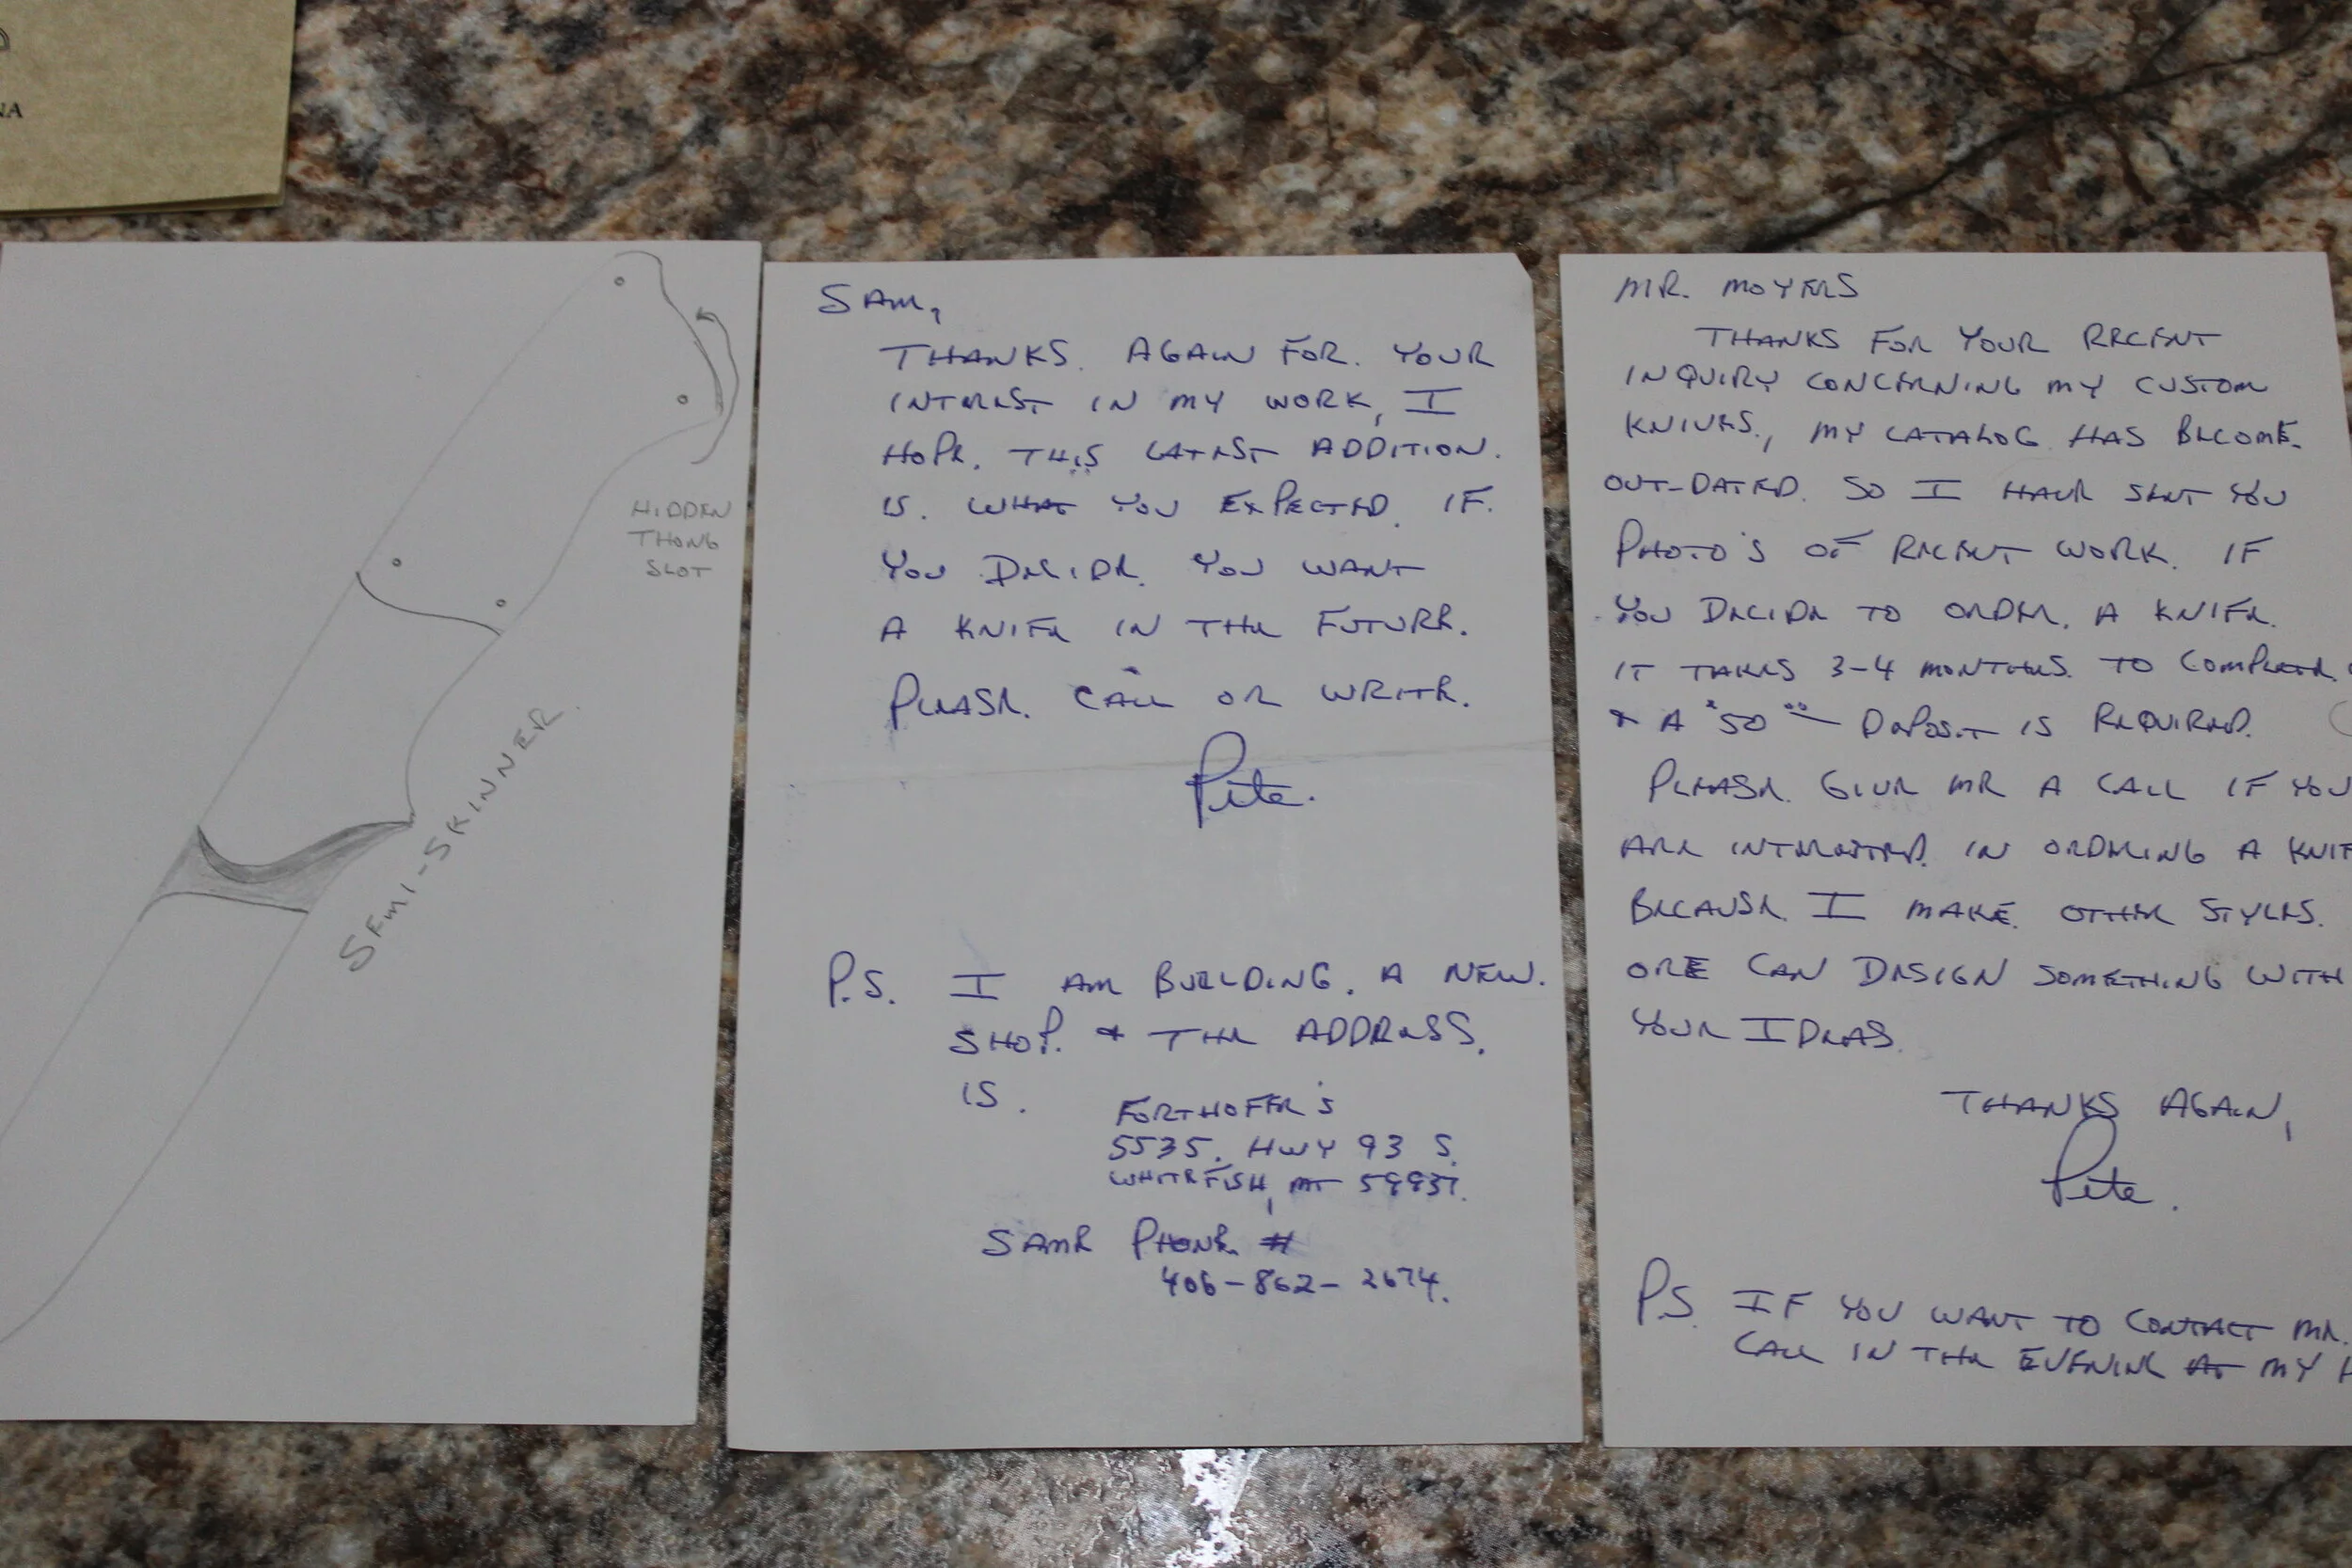 NA
HIDDEN
THONG
SLOT
SEMI-SKINNER
SAM,
THANKS. AGAIN FOR. YOUR
INTEREST IN MY WORK, I
HOPE. THIS LATEST ADDITION.
IS. WHAT YOU EXPECTED. IF.
YOU DECIDE. YOU WANT
A KNIFE IN THE FUTURE.
PLEASE. CALL OR WRITE.
Pete.
P.S. I AM BUILDING. A NEW.
SHOP. & THE ADDRESS.
IS.
FORTHOFER'S
5535. HWY 93 S.
WHITEFISH, MT 59937.
SAME PHONE. #
406-862-2674.
MR. MOYERS
THANKS FOR YOUR RECENT
INQUIRY CONCERNING MY CUSTOM
KNIVES., MY CATALOG HAS BECOME.
OUT-DATED. SO I HAVE SENT YOU
PHOTO'S OF RECENT WORK. IF
YOU DECIDE TO ORDER. A KNIFE.
IT TAKES 3-4 MONTHS. TO COMPLETE.
& A $50.00 DEPOSIT IS REQUIRED.
PLEASE. GIVE ME A CALL IF YOU
ARE INTERESTED. IN ORDERING A KNIF
BECAUSE. I MAKE. OTHER STYLES.
ORE CAN DESIGN SOMETHING WITH
YOUR IDEAS.
THANKS AGAIN,
Pete.
P.S. IF YOU WANT TO CONTACT ME.
CALL IN THE EVENING AT MY